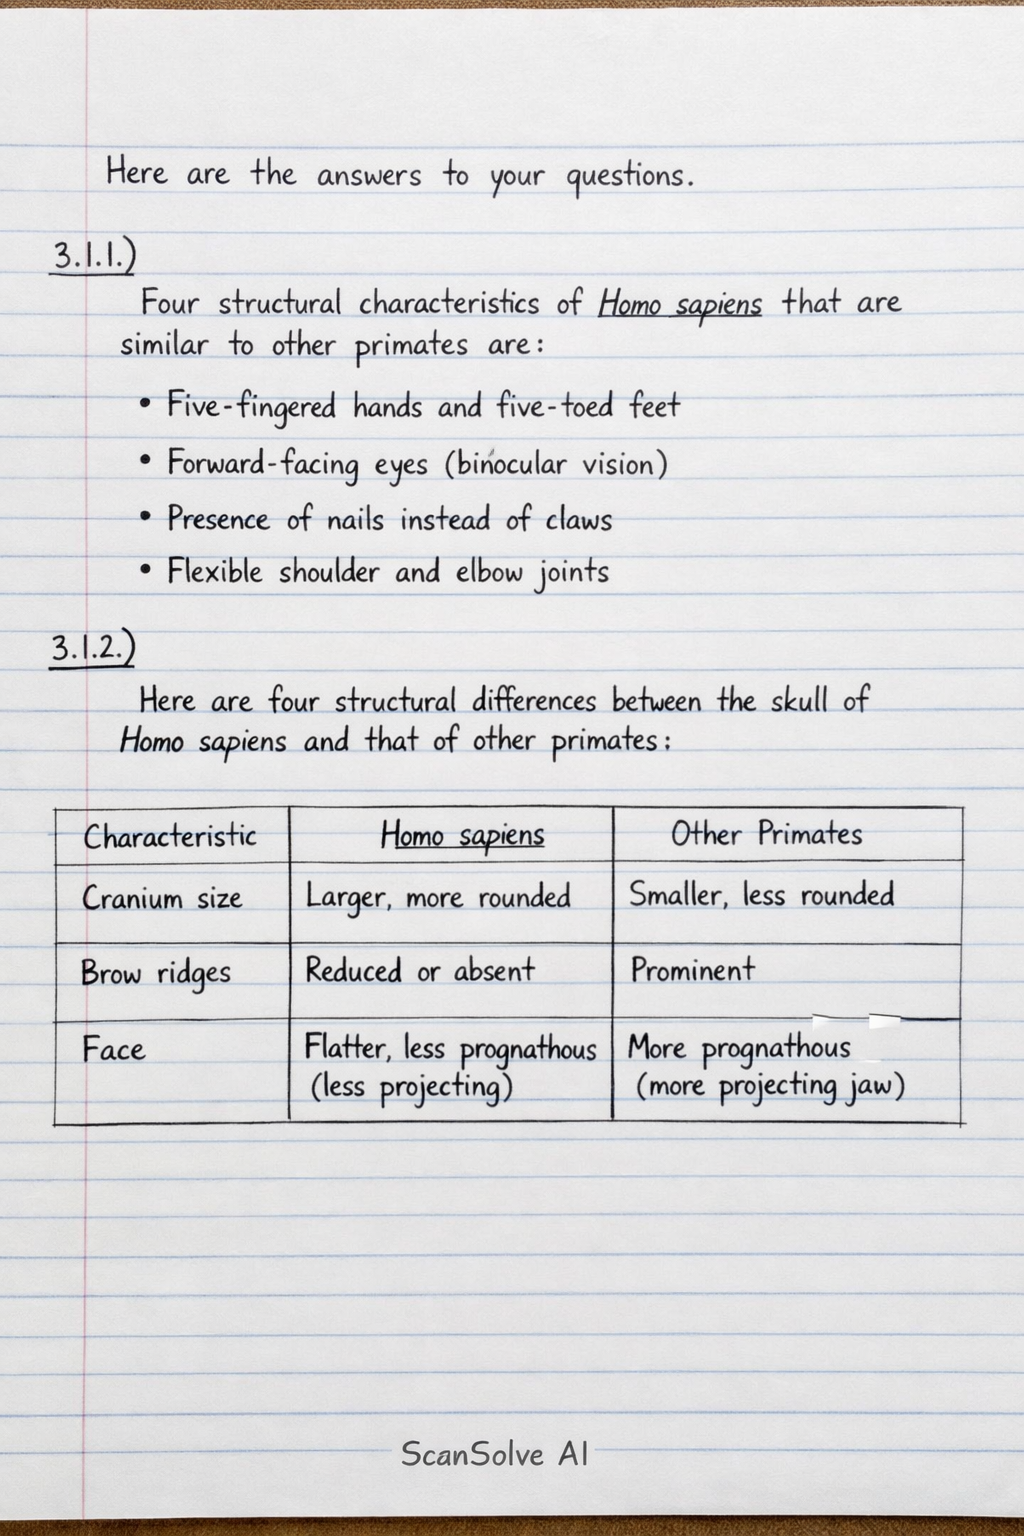 Here are the answers to your questions.
3.1.1.)
Four structural characteristics of Homo sapiens that are
similar to other primates are:
• Five-fingered hands and five-toed feet
• Forward-facing eyes (binocular vision)
• Presence of nails instead of claws
• Flexible shoulder and elbow joints
3.1.2.)
Here are four structural differences between the skull of
Homo sapiens and that of other primates:
Characteristic Homo sapiens Other Primates
Cranium size Larger, more rounded Smaller, less rounded
Brow ridges Reduced or absent Prominent
Face Flatter, less prognathous More prognathous
(less projecting) (more projecting jaw)
ScanSolve AI